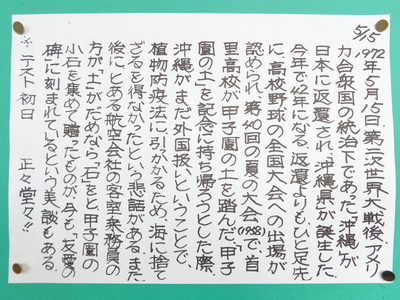 5/15
1972年5月15日、第二次世界大戦後、アメリ
カ合衆国の統治下であった「沖縄」が
日本に返還され、「沖縄県」が誕生した。
今年で42年になる。返還よりもひと足先
に、高校野球の全国大会への出場が
認められ、第40回の夏の大会(1958)で、首
里高校が甲子園の土を踏んだ。「甲子
園の土」を記念に持ち帰ろうとした際、
沖縄がまだ外国扱いということで、
植物防疫法に引っかかるため、海に捨て
ざるを得なかったという悲話がある。また、
後に、とある航空会社の客室乗務員の
方が「土」がだめなら「石」をと甲子園の
小石を集めて贈ったものが、今も「友愛の
碑」に刻まれているという美談もある。
※テスト初日 正々堂々!!